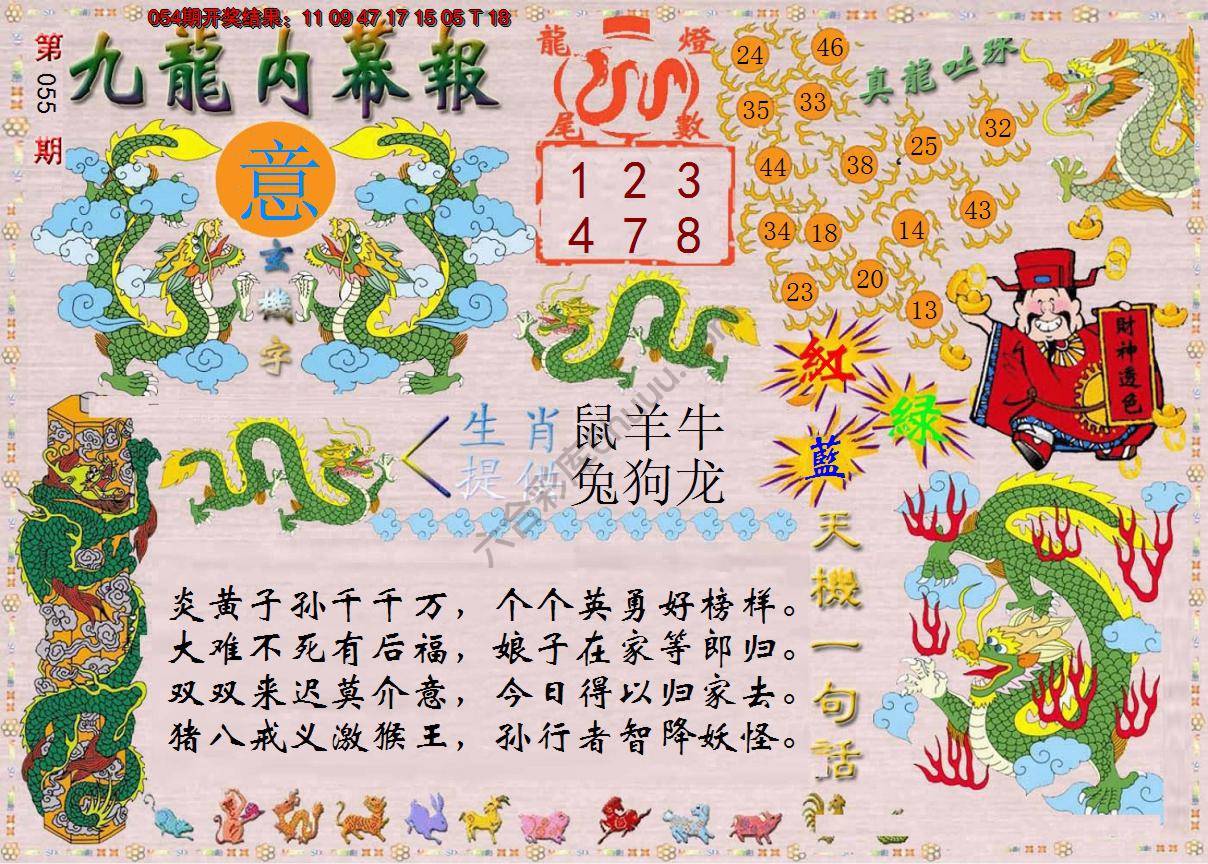 054期开奖结果：11 09 47 17 15 05 T 18
第
055
期
九龍内幕報
意
玄
機
字
龍 燈
尾 數
1 2 3
4 7 8
真龍吐珠
24
46
35
33
25
32
44
38
43
34
18
14
23
20
13
財神透色
紅
綠
藍
生肖
提供
鼠羊牛
兔狗龙
炎黄子孙千千万，个个英勇好榜样。
大难不死有后福，娘子在家等郎归。
双双来迟莫介意，今日得以归家去。
猪八戒义激猴王，孙行者智降妖怪。
天機一句話